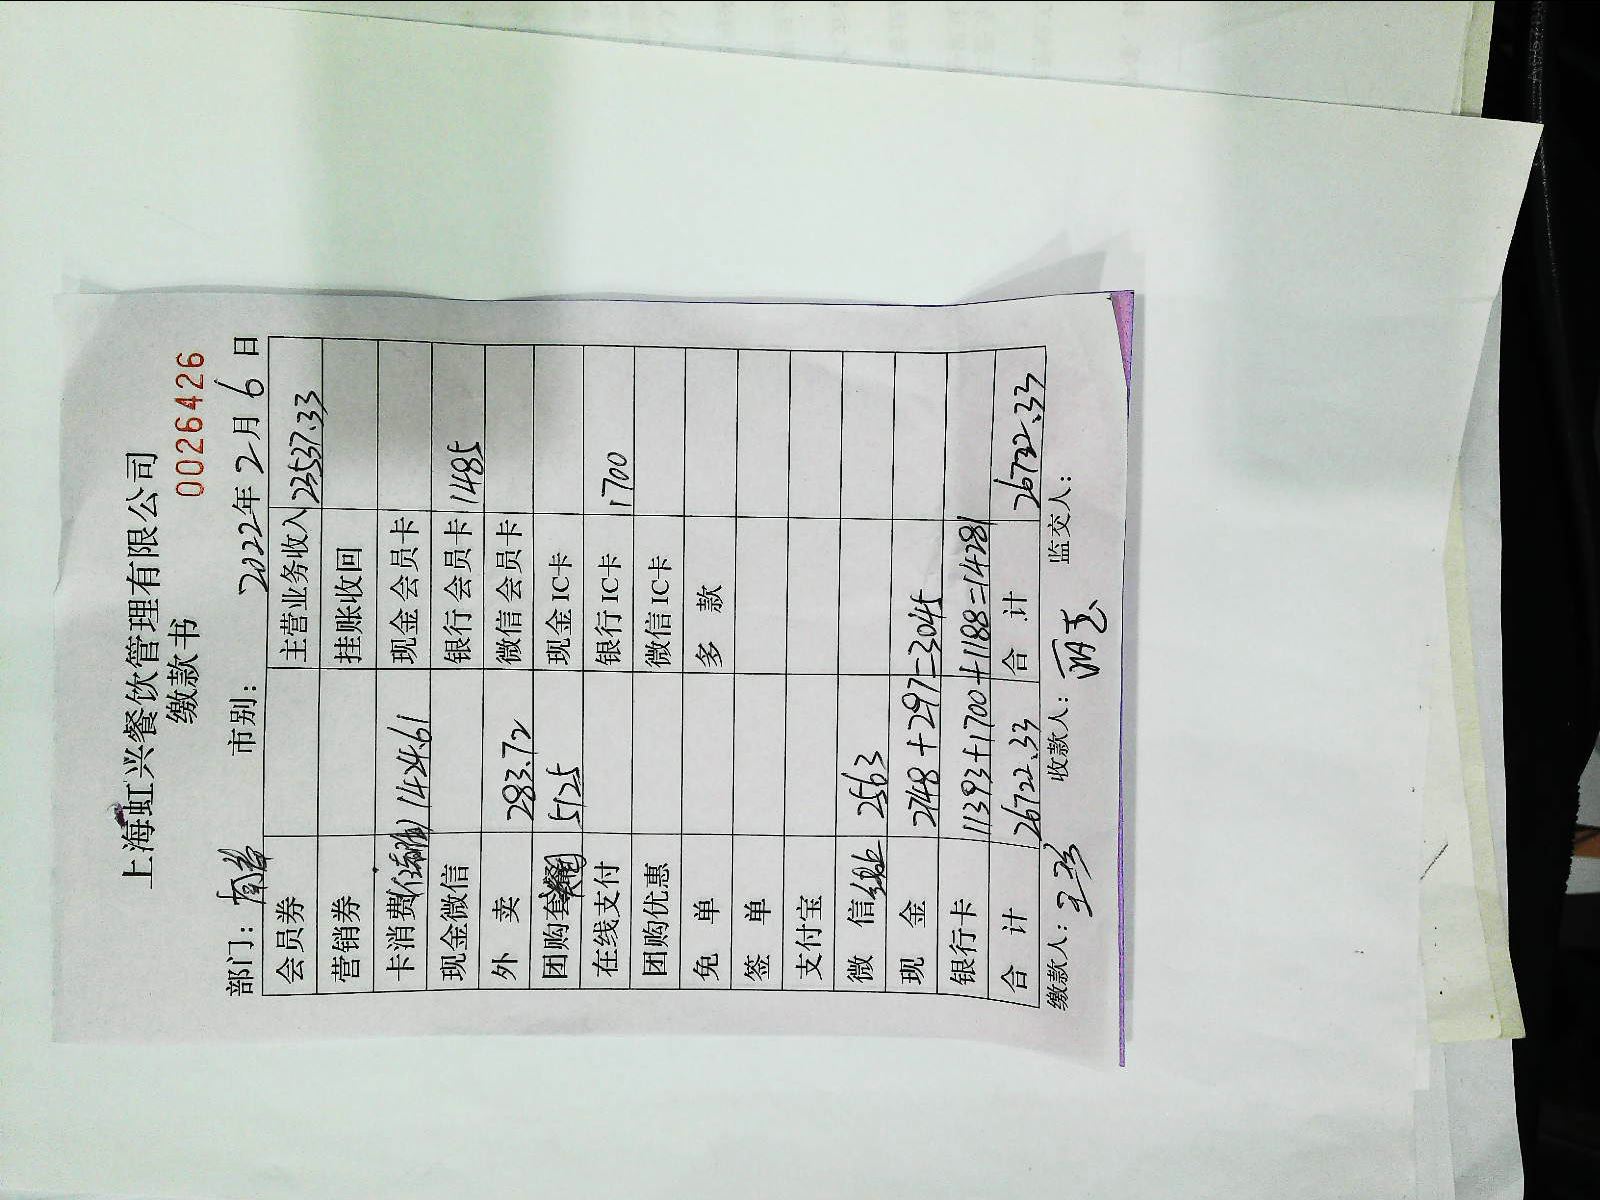 上海虹兴餐饮管理有限公司
缴款书
0026426
部门： 市别： 2022年2月6日
会员券 主营业务收入 23537.33
营销券 挂账收回
卡消费 1424.61 现金会员卡
现金微信 银行会员卡 1485
外 卖 283.72 微信会员卡
团购套餐 5125 现金IC卡
在线支付 银行IC卡 1700
团购优惠 微信IC卡
免 单 多 款
签 单
支付宝
微 信 2563
现 金 2748+297=3045
银行卡 11393+1700+1188=14281
合 计 26722.33 合 计 26722.33
缴款人： 收款人： 监交人：